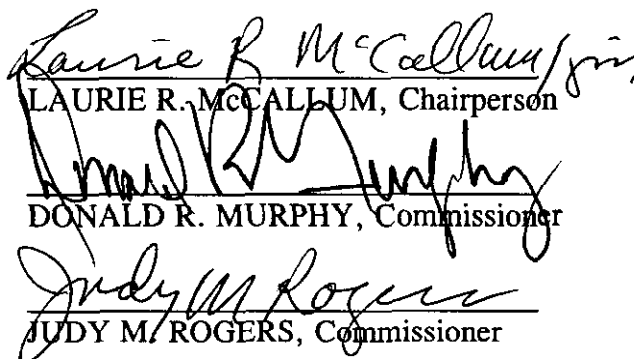 Laurie R McCallum
LAURIE R. McCALLUM, Chairperson
Donald R Murphy
DONALD R. MURPHY, Commissioner
Judy M Rogers
JUDY M. ROGERS, Commissioner